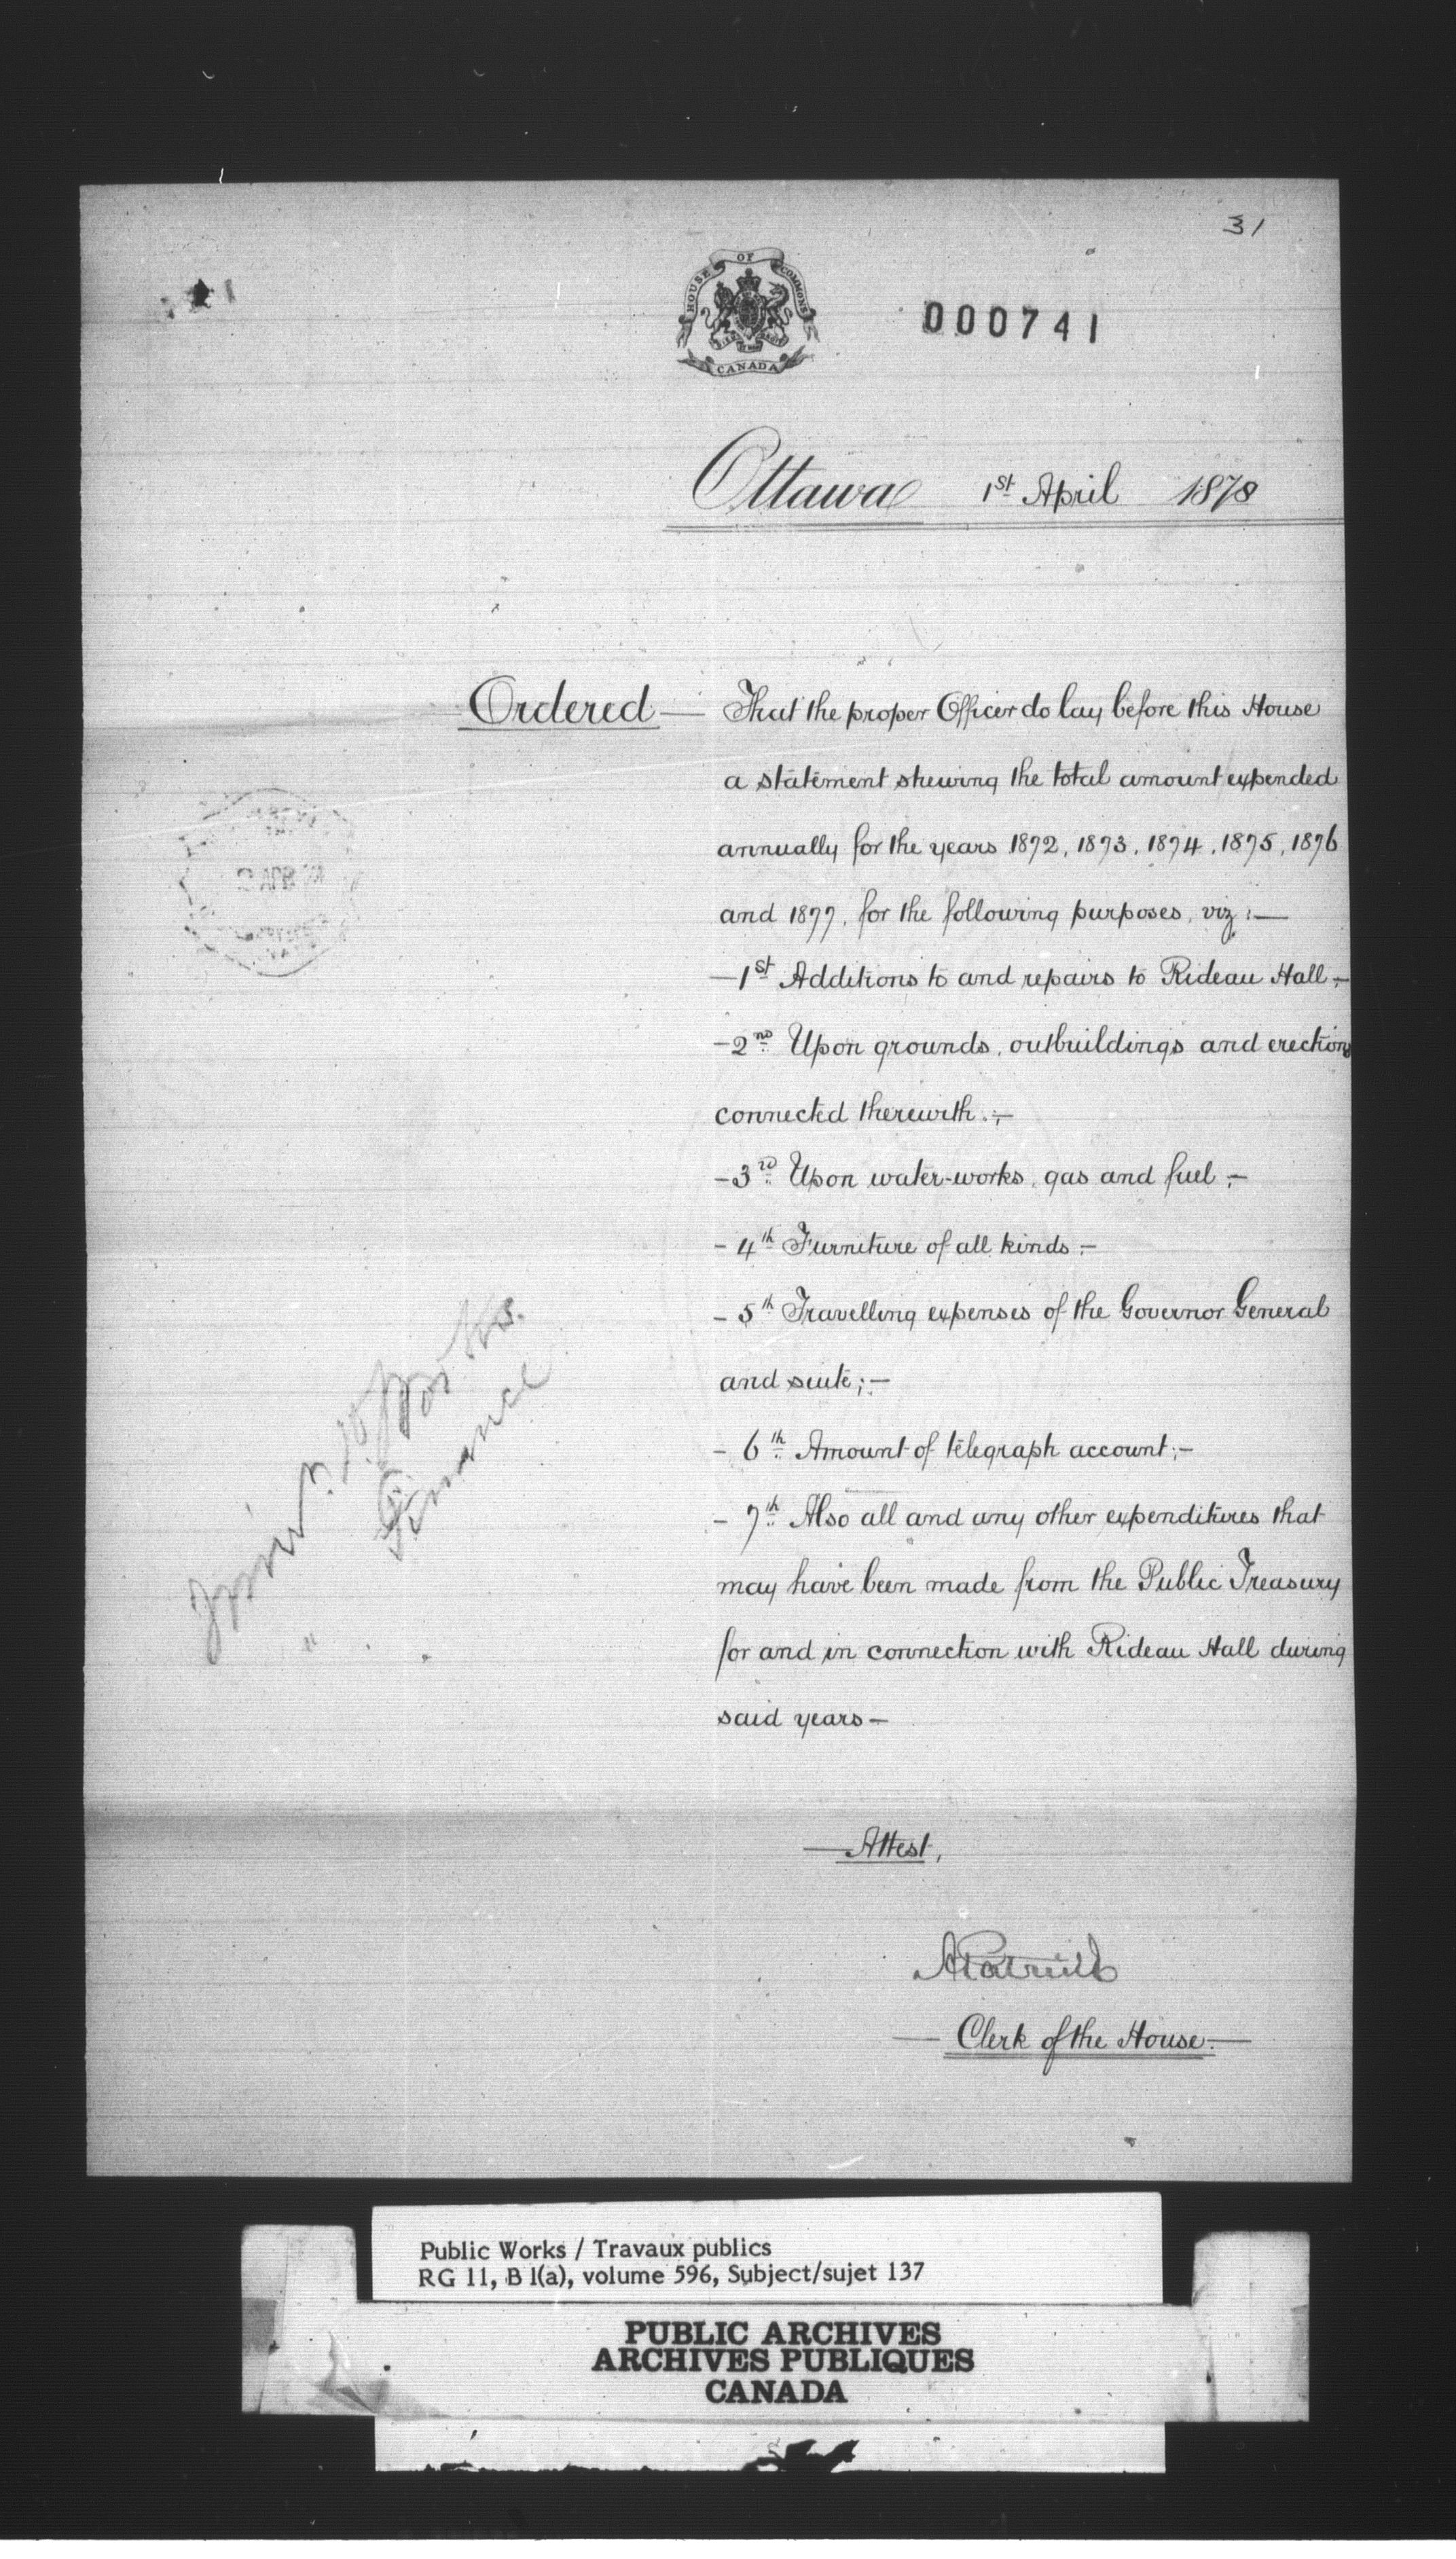 31
HOUSE OF COMMONS
CANADA
000741
Ottawa 1st April 1878
Ordered — That the proper Officer do lay before this House
a statement shewing the total amount expended
annually for the years 1872, 1873, 1874, 1875, 1876
and 1877, for the following purposes, viz:—
—1st Additions to and repairs to Rideau Hall;—
—2nd Upon grounds, outbuildings and erections
connected therewith.;—
—3rd Upon water-works, gas and fuel;—
— 4th Furniture of all kinds;—
— 5th Travelling expenses of the Governor General
and suite;—
— 6th Amount of telegraph account;—
— 7th Also all and any other expenditures that
may have been made from the Public Treasury
for and in connection with Rideau Hall during
said years—
2 APR
Works.
" Finance
— Attest,
A Patrick
— Clerk of the House.—
Public Works / Travaux publics
RG 11, B 1(a), volume 596, Subject/sujet 137
PUBLIC ARCHIVES
ARCHIVES PUBLIQUES
CANADA